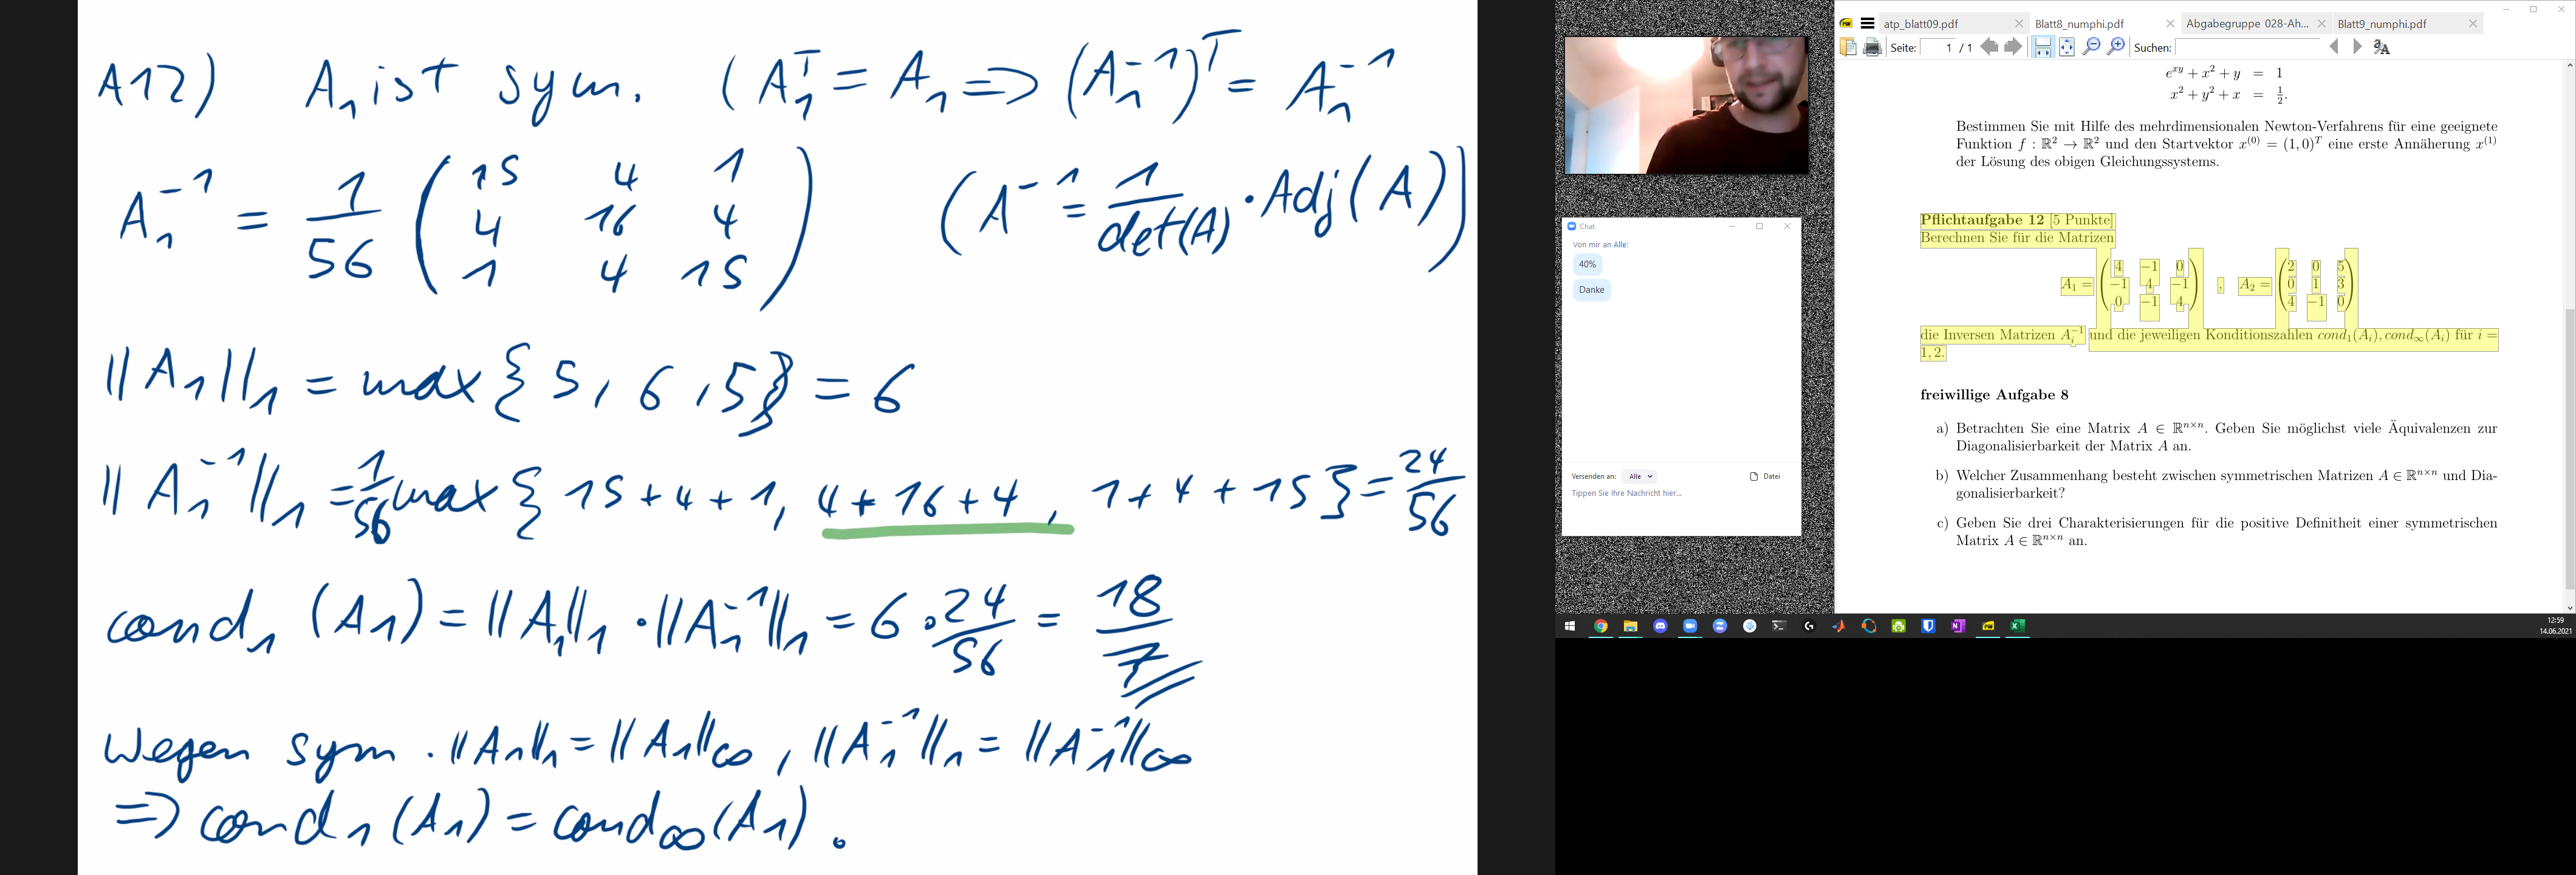 A12) A₁ ist sym. (A₁ᵀ = A₁ => (A₁⁻¹)ᵀ = A₁⁻¹
A₁⁻¹ = 1/56 ( 15 4 1
4 16 4
1 4 15 ) (A⁻¹ = 1/det(A) · Adj(A))
||A₁||₁ = max{5, 6, 5} = 6
||A₁⁻¹||₁ = 1/56 max{15+4+1, 4+16+4, 1+4+15} = 24/56
cond₁ (A₁) = ||A₁||₁ · ||A₁⁻¹||₁ = 6 · 24/56 = 18/7
Wegen sym. ||A₁||₁ = ||A₁||∞, ||A₁⁻¹||₁ = ||A₁⁻¹||∞
=> cond₁ (A₁) = cond∞ (A₁).
Chat
Von mir an Alle:
40%
Danke
Versenden an: Alle Datei
Tippen Sie Ihre Nachricht hier...
atp_blatt09.pdf Blatt8_numphi.pdf Abgabegruppe 028-Ah... Blatt9_numphi.pdf
Seite: 1 / 1 Suchen:
e^{xy} + x² + y = 1
x² + y² + x = 1/2.
Bestimmen Sie mit Hilfe des mehrdimensionalen Newton-Verfahrens für eine geeignete
Funktion f : ℝ² → ℝ² und den Startvektor x⁽⁰⁾ = (1, 0)ᵀ eine erste Annäherung x⁽¹⁾
der Lösung des obigen Gleichungssystems.
Pflichtaufgabe 12 [5 Punkte]
Berechnen Sie für die Matrizen
A₁ = ( 4 −1 0
−1 4 −1
0 −1 4 ) , A₂ = ( 2 0 5
0 1 3
4 −1 0 )
die Inversen Matrizen Aᵢ⁻¹ und die jeweiligen Konditionszahlen cond₁(Aᵢ), cond∞(Aᵢ) für i =
1, 2.
freiwillige Aufgabe 8
a) Betrachten Sie eine Matrix A ∈ ℝⁿˣⁿ. Geben Sie möglichst viele Äquivalenzen zur
Diagonalisierbarkeit der Matrix A an.
b) Welcher Zusammenhang besteht zwischen symmetrischen Matrizen A ∈ ℝⁿˣⁿ und Dia-
gonalisierbarkeit?
c) Geben Sie drei Charakterisierungen für die positive Definitheit einer symmetrischen
Matrix A ∈ ℝⁿˣⁿ an.
12:59
14.06.2021